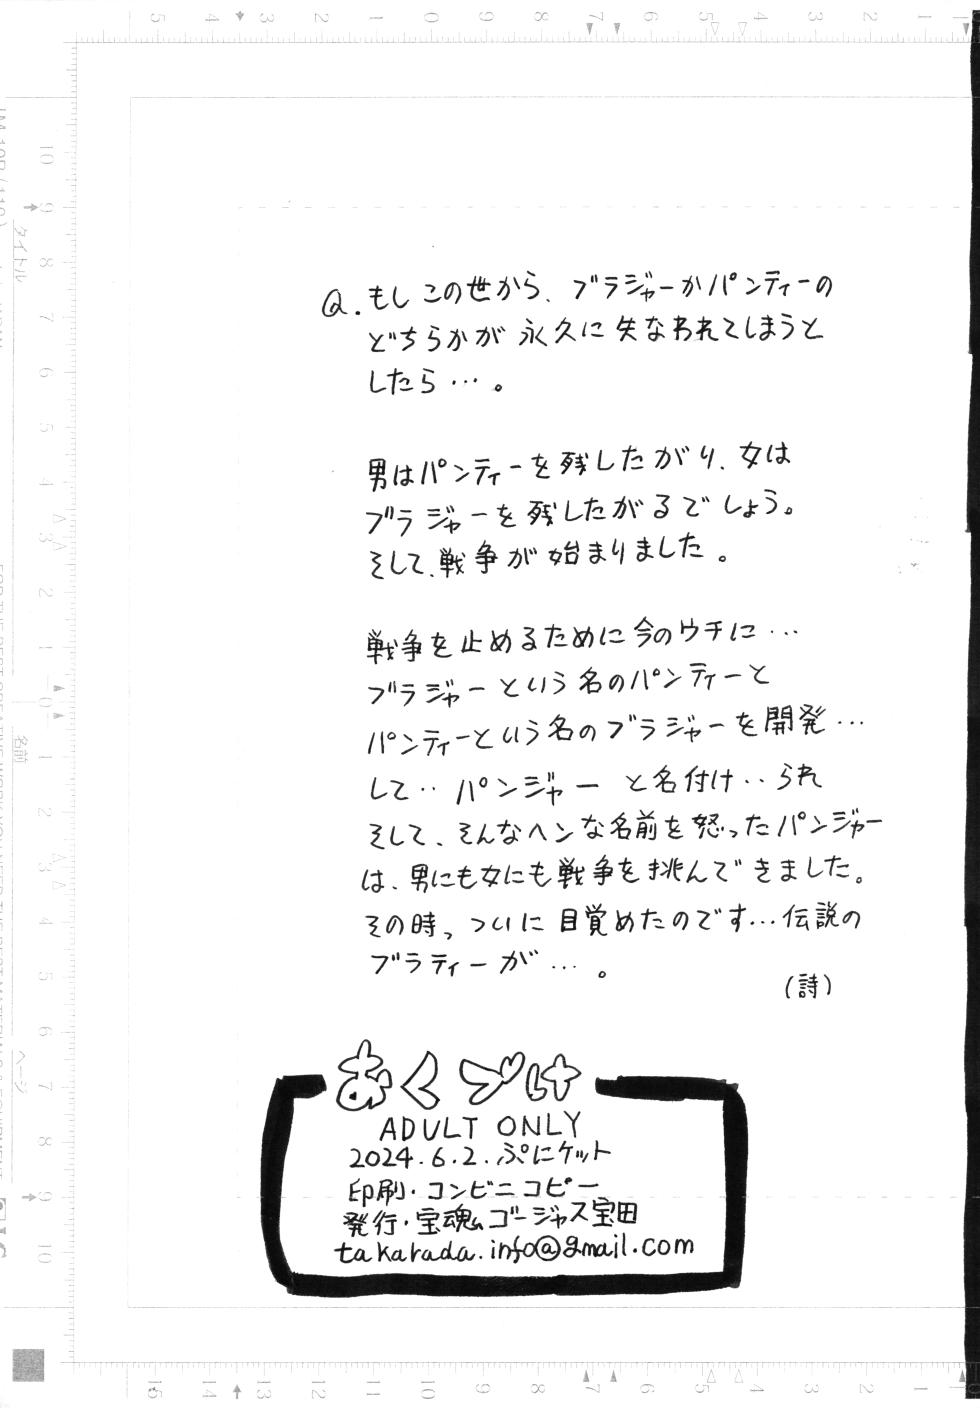 Q. もしこの世から、ブラジャーかパンティーの
どちらかが永久に失なわれてしまうと
したら…。
男はパンティーを残したがり、女は
ブラジャーを残したがるでしょう。
そして、戦争が始まりました。
戦争を止めるために今のウチに…
ブラジャーという名のパンティーと
パンティーという名のブラジャーを開発…
して‥パンジャーと名付け‥られ
そして、そんなヘンな名前を怒ったパンジャー
は、男にも女にも戦争を挑んできました。
その時っついに目覚めたのです…伝説の
ブラティーが…。
(詩)
おくづけ
ADULT ONLY
2024.6.2.ぷにケット
印刷・コンビニコピー
発行・宝魂ゴージャス宝田
takarada.info@gmail.com
タイトル
名前
ページ